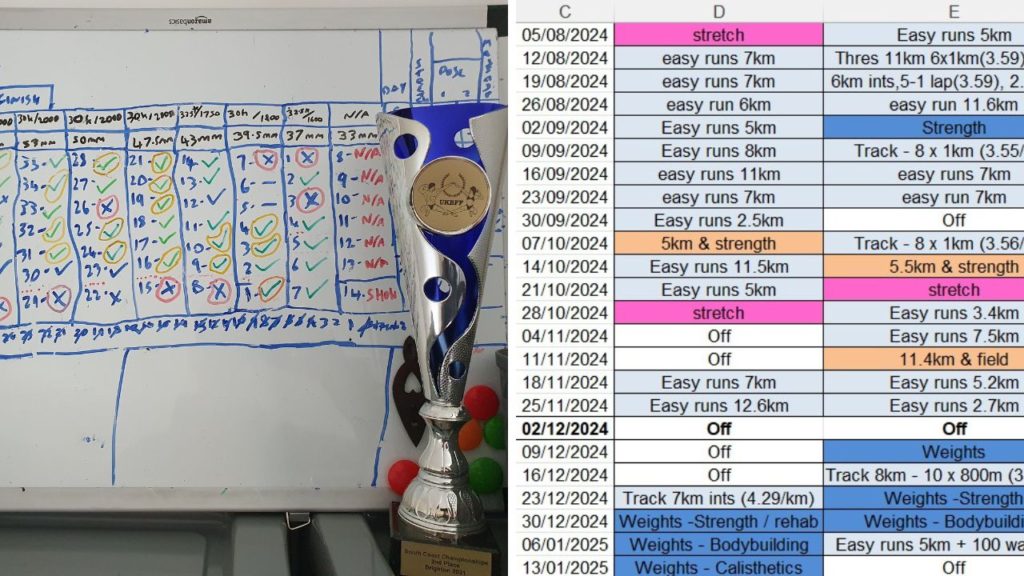 amazonbasics
FINISH
DAY
DOSE
1 2
30h/2000 30h/2000 30h/1800 N/A
50mm 47.5mm 43mm 39.5mm 37mm 33mm
28- 21- 14- 7- 1 8-N/A
34- 27- 20- 13- 6- 2 9-N/A
33- 26- 19- 12- 5- 3 10-N/A
32- 25- 18- 11- 4 11-N/A
31- 24- 17- 10- 3 5 12-N/A
30- 23- 16- 9- 2 6 13-N/A
29- 22- 15- 8- 1 7 14-SHOW
UKBFF
South Coast Championships
2nd Place
Brighton 2021
C D E
05/08/2024 stretch Easy runs 5km
12/08/2024 easy runs 7km Thres 11km 6x1km(3.59)
19/08/2024 easy runs 7km 6km ints,5-1 lap(3.59), 2.
26/08/2024 easy run 6km easy run 11.6km
02/09/2024 Easy runs 5km Strength
09/09/2024 Easy runs 8km Track - 8 x 1km (3.55/
16/09/2024 easy runs 11km easy runs 7km
23/09/2024 easy runs 7km easy run 7km
30/09/2024 Easy runs 2.5km Off
07/10/2024 5km & strength Track - 8 x 1km (3.56/
14/10/2024 Easy runs 11.5km 5.5km & strength
21/10/2024 Easy runs 5km stretch
28/10/2024 stretch Easy runs 3.4km
04/11/2024 Off Easy runs 7.5km
11/11/2024 Off 11.4km & field
18/11/2024 Easy runs 7km Easy runs 5.2km
25/11/2024 Easy runs 12.6km Easy runs 2.7km
02/12/2024 Off Off
09/12/2024 Off Weights
16/12/2024 Off Track 8km - 10 x 800m (3
23/12/2024 Track 7km ints (4.29/km) Weights -Strength
30/12/2024 Weights -Strength / rehab Weights - Bodybuildi
06/01/2025 Weights - Bodybuilding Easy runs 5km + 100 wa
13/01/2025 Weights - Calisthetics Off